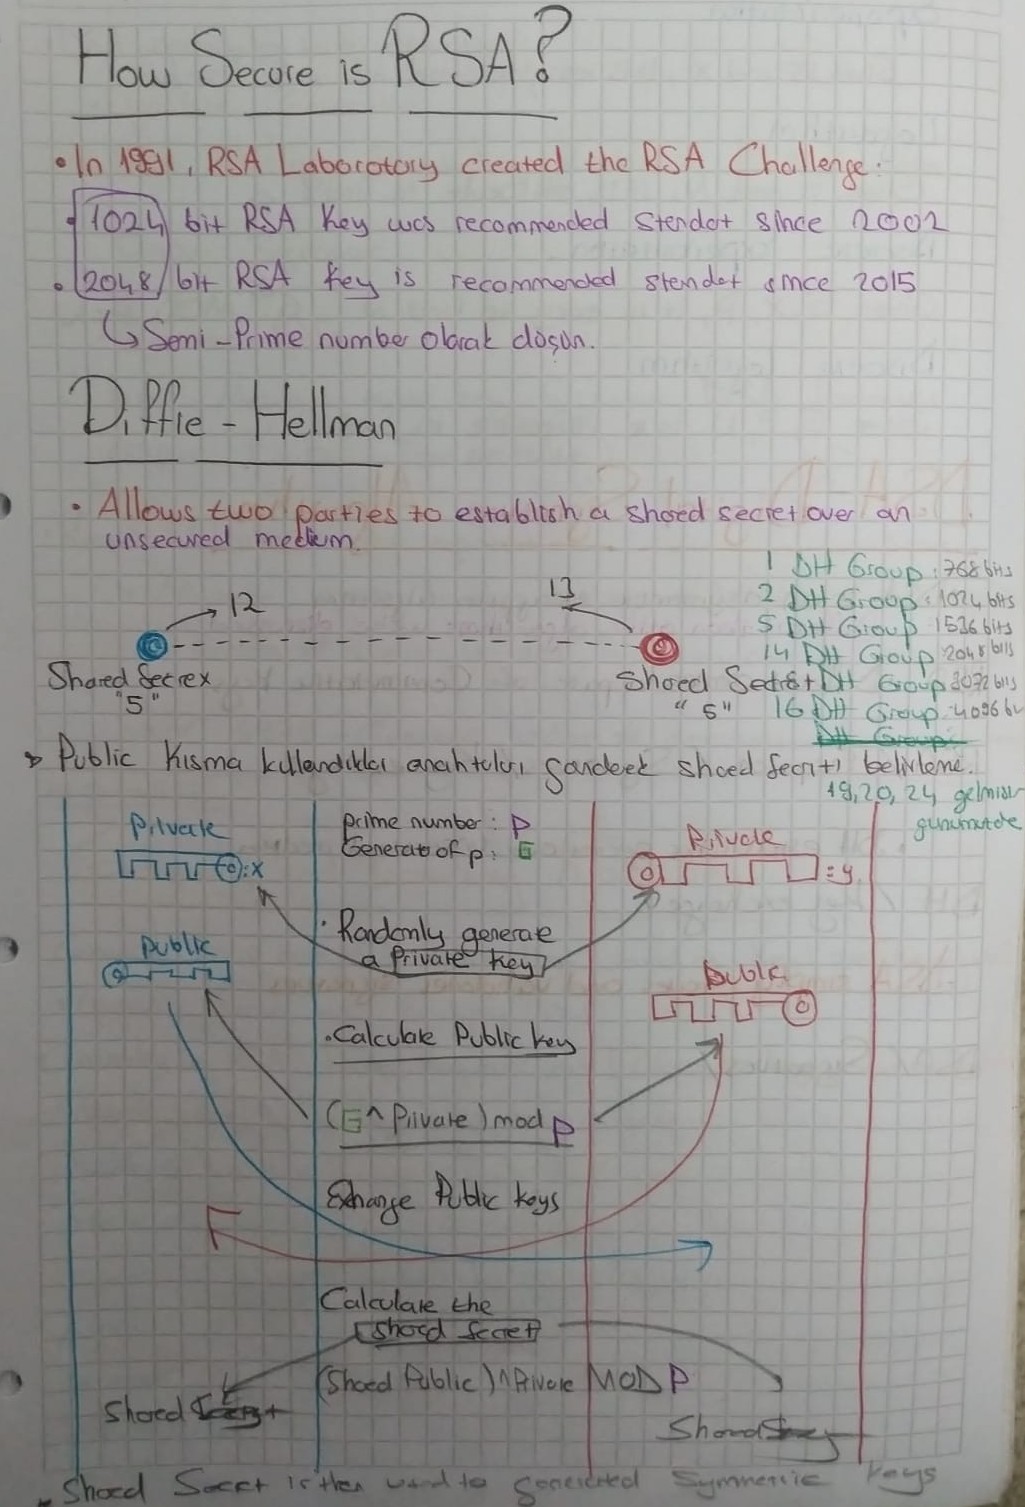 How Secure is RSA?
• In 1991, RSA Laboratory created the RSA Challenge.
• 1024 bit RSA Key was recommended stendat since 2002
• 2048 bit RSA key is recommended stendet since 2015
↳ Semi-Prime number olarak düşün.
Diffie - Hellman
• Allows two parties to establish a shared secret over an
unsecured medium.
12
13
Shared Secret
"5"
Shared Secret
"5"
1 DH Group: 768 bits
2 DH Group: 1024 bits
5 DH Group 1536 bits
14 DH Group 2048 bits
DH Group 3072 bits
16 DH Group 4096 bit
DH Group
Public Kısma kullandıkları anahtarları shared secreti belirleme.
19, 20, 24 gelmiş
günümüzde
Private
:x
prime number: P
Generator of p: G
Private
:y
• Randomly generate
a Private key
Public
Public
• Calculate Public key
(G ^ Private) mod P
Exhange Public keys
Calculate the
Shared Secret
(Shared Public) ^ Private MOD P
Shared
Shared
• Shared Secret is then used to generated Symmetric keys